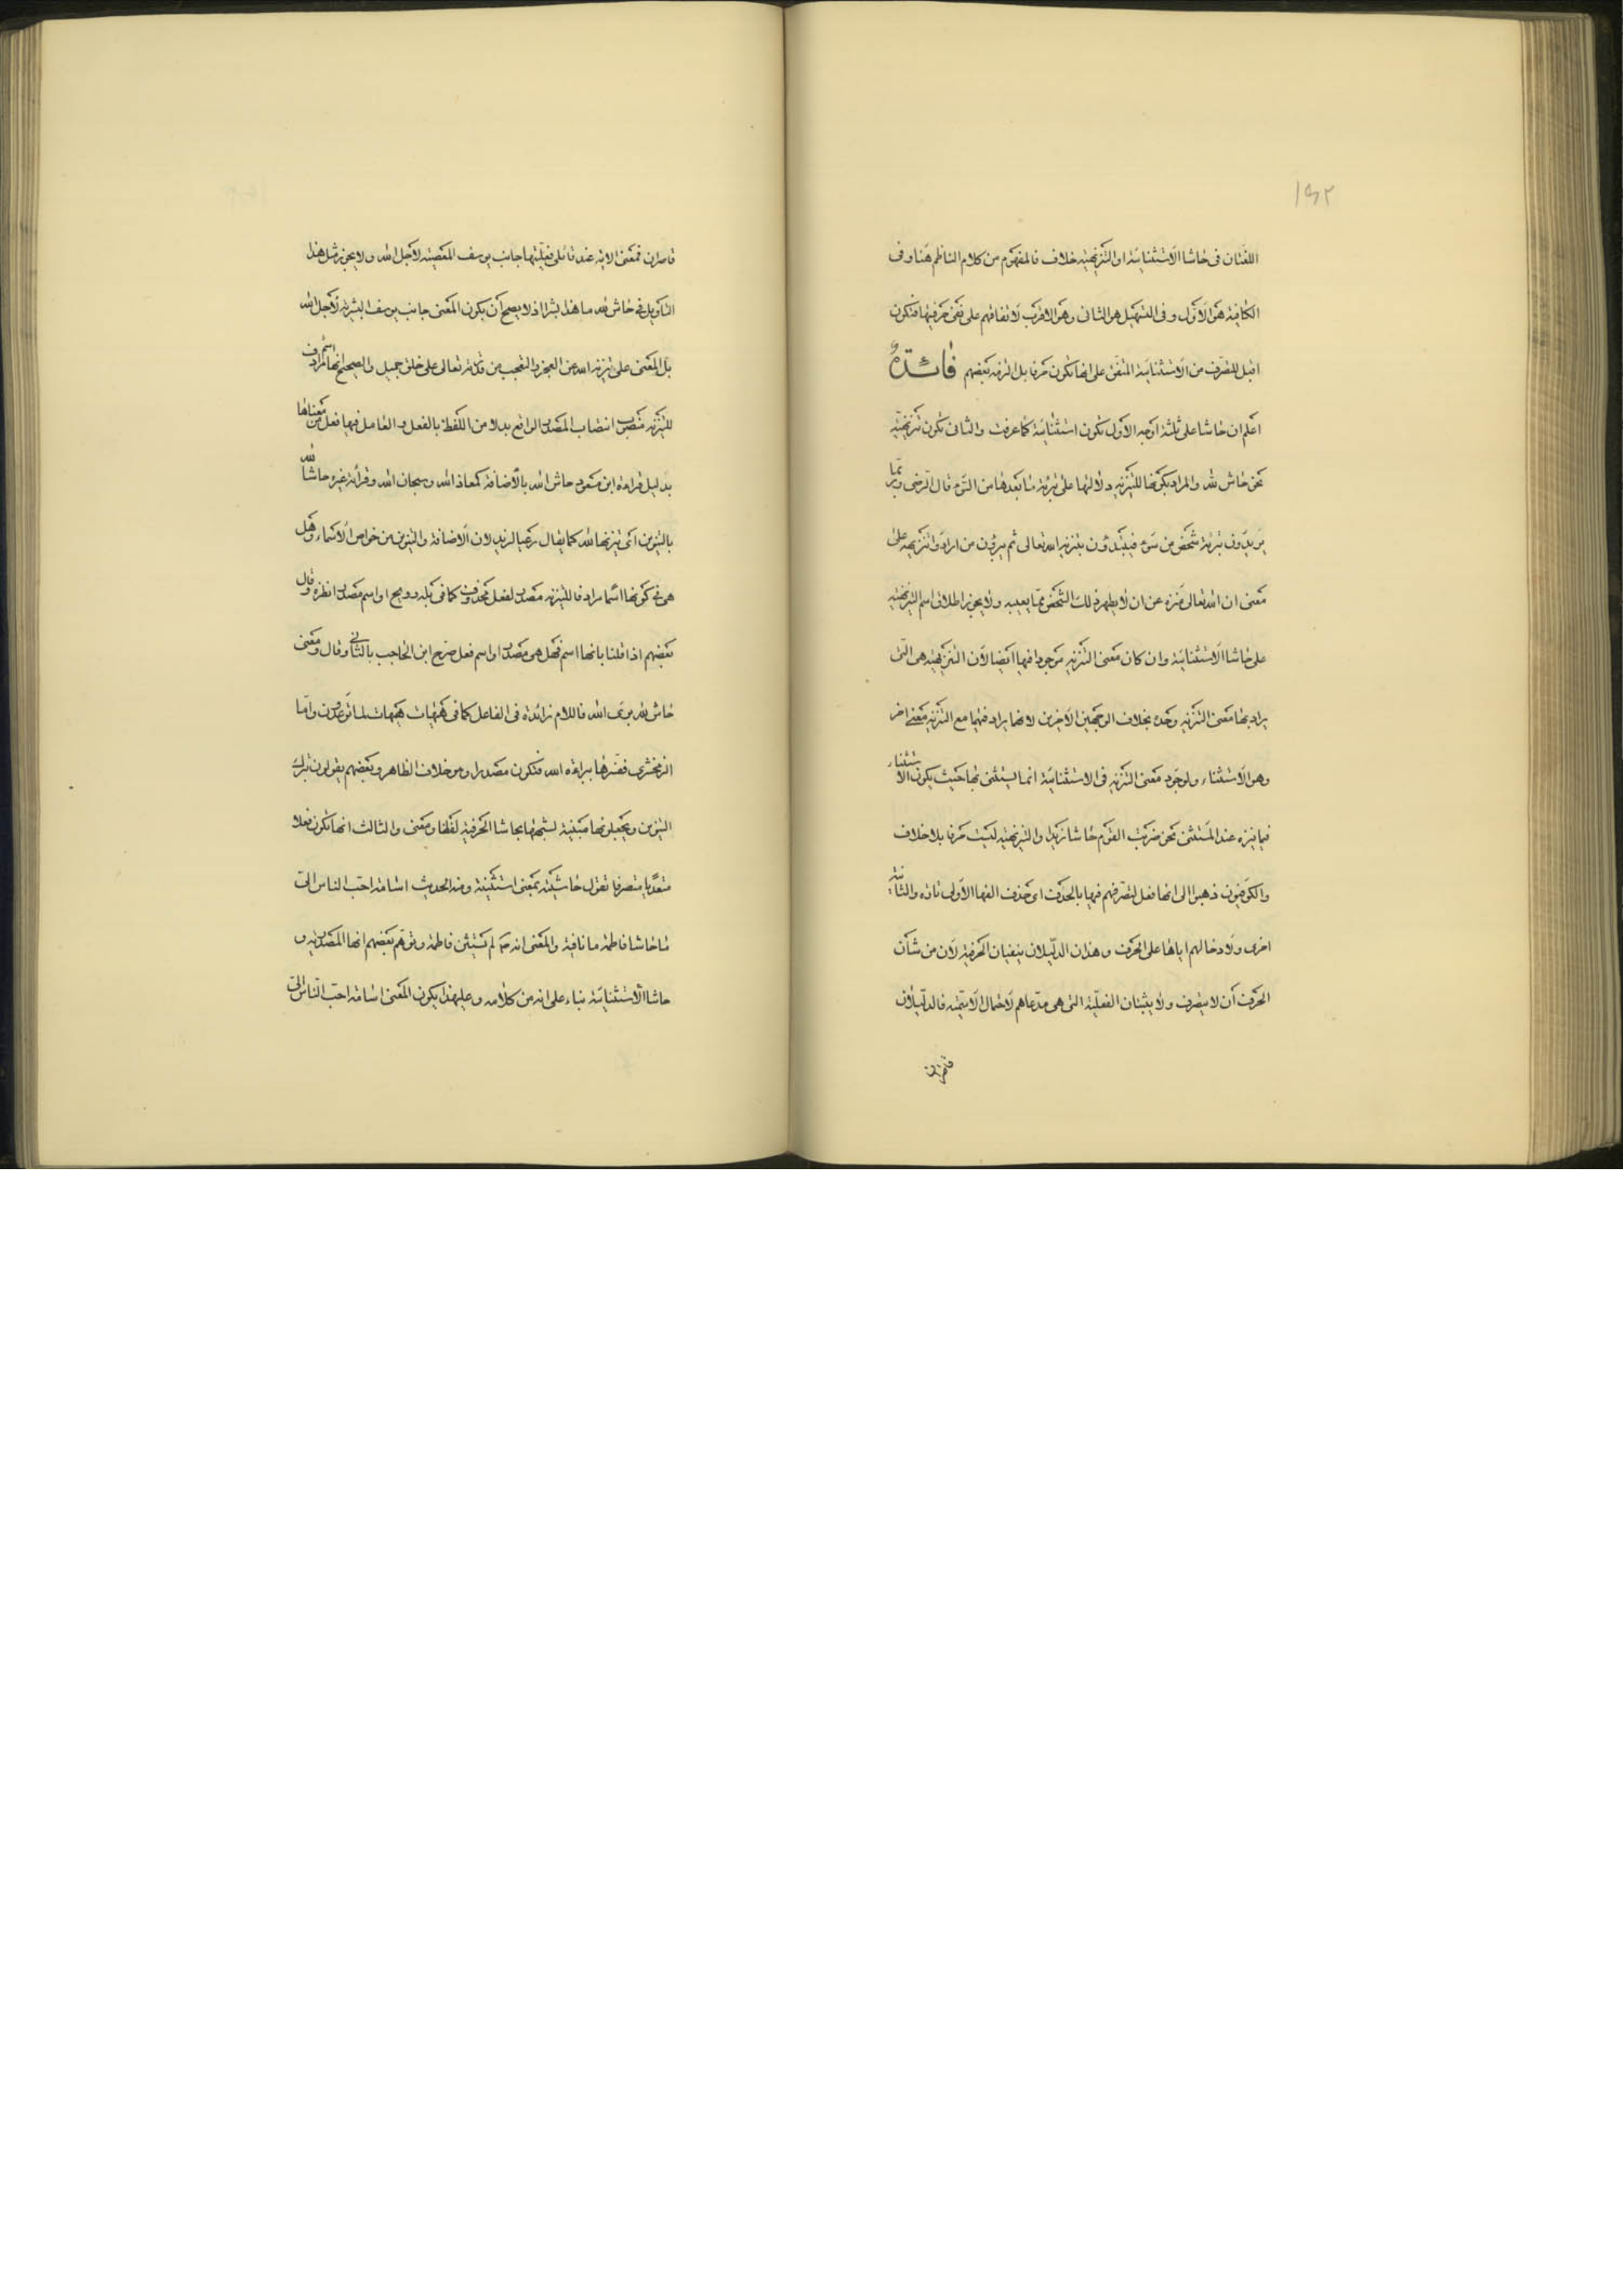 ١٥٢
اللغتان فى حاشا الاستثنائية او التنزيهية خلاف فالمفهوم من كلام الناظم هنا وفى
الكافية هو الاول وفى التسهيل هو الثانى وهو الاقرب لاتفاقهم على نفى حرفيتها فتكون
اقبل للتصرف من الاستثنائية المتفق على انها تكون حرفا بل التزمه بعضهم فائدة
اعلم ان حاشا على ثلثة اوجه الاول تكون استثنائية كما عرفت والثانى تكون تنزيهية
نحو حاش لله والمراد بكونها للتنزيه دلالتها على تبرئة ما بعدها من السوء قال الرضى وربما
يريدون تبرئة شخص من سوء فيبتدؤن بتنزيه الله تعالى ثم يبرؤن من ارادوا تنزيهه على
معنى ان الله تعالى منزه عن ان لا يطهر ذلك الشخص مما يعيبه ولا يجوز اطلاق اسم التنزيهية
على حاشا الاستثنائية وان كان معنى التنزيه موجودا فيها ايضا لان التنزيهية هى التى
يراد بها معنى التنزيه وحده بخلاف الوجهين الاخرين لانها يراد فيهما مع التنزيه معنى اخر
وهو الاستثناء ولوجود معنى التنزيه فى الاستثنائية انما يستثنى بها حيث يكون الاستثناء
فيما ينزه عنه المستثنى نحو ضربت القوم حاشا زيدا والتنزيهية ليست حرفا بلا خلاف
والكوفيون ذهبوا الى انها فعل لتصرفهم فيها بالحذف اى حذف الفها الاولى تارة والثانية
اخرى ولادخالهم اياها على الحرف وهذان الدليلان ينفيان الحرفية لان من شأن
الحرف ان لا يتصرف ولا يثبتان الفعلية التى هى مدعاهم لاحتمال الاسمية فالدليلان
قاصران فمعنى الاية عند قائلى فعليتها جانب يوسف المعصية لاجل الله ولا يجوز مثل هذا
التاويل فى حاش لله ما هذا بشرا اذ لا يصح ان يكون المعنى جانب يوسف البشرية لاجل الله
بل المعنى على تنزيه الله عن العجز والتعجب من قدرته تعالى على خلق جميل والصحيح انها اسم مرادف
للتنزيه منصوب انتصاب المصدر الواقع بدلا من اللفظ بالفعل والعامل فيها فعل من معناها
بدليل قراءة ابن مسعود حاش الله بالاضافة كمعاذ الله وسبحان الله وقرأة غيره حاشا لله
بالتنوين اى تنزيها لله كما يقال رعيا لزيد لان الاضافة والتنوين من خواص الاسماء وهل
هى فى كونها اسما مرادفا للتنزيه مصدر لفعل محذوف كما فى بله وويح او اسم مصدر انظره وقال
بعضهم اذا قلنا بانها اسم فهل هى مصدر او اسم فعل صرح ابن الحاجب بالثانى وقال ومعنى
حاش لله برئ الله فاللام زائدة فى الفاعل كما فى هيهات هيهات لما توعدون واما
الزمخشرى ففسرها ببراءة الله فتكون مصدرا وهو خلاف الظاهر وبعضهم يقولون بترك
التنوين ويجعلونها مبنية لشبهها بحاشا الحرفية لفظا ومعنى والثالث انها تكون فعلا
متعديا متصرفا تقول حاشيته بمعنى استثنيته ومنه الحديث اسامة احب الناس الى
ما حاشا فاطمة ما نافية والمعنى انه لم يستثن فاطمة وتوهم بعضهم انها المصدرية و
حاشا الاستثنائية بناء على انه من كلامه وعليه هذا يكون المعنى اسامة احب الناس الى